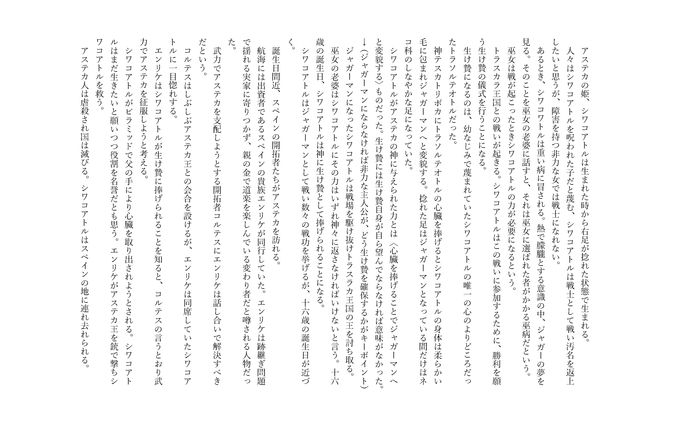 アステカの姫、シワコアトルは生まれた時から右足が捻れた状態で生まれる。
人々はシワコアトルを呪われた子だと蔑む、シワコアトルは戦士として戦い汚名を返上
したいと思うが、障害を持つ非力な女では戦士になれない。
あるとき、シワコワトルは重い病に冒される。熱で朦朧とする意識の中、ジャガーの夢を
見る。そのことを巫女の老婆に話すと、それは巫女に選ばれた者がかかる巫病だという。
巫女は戦が起こったときシワコアトルの力が必要になるという。
トラスカラ王国との戦いが起きる。シワコアトルはこの戦いに参加するために、勝利を願
う生け贄の儀式を行うことになる。
生け贄になるのは、幼なじみで蔑まれていたシワコアトルの唯一の心のよりどころだっ
たトラソルテオトルだった。
神テスカトリポカにトラソルテオトルの心臓を捧げるとシワコアトルの身体は柔らかい
毛に包まれジャガーマンへと変貌する。捻れた足はジャガーマンとなっている間だけはネ
コ科のしなやかな足になっていた。
シワコアトルがアステカの神に与えられた力とは〈心臓を捧げることでジャガーマンへ
と変貌する〉ものだった。生け贄には生け贄自身が自ら望んでならなければ意味がなかった。
→（ジャガーマンにならなければ非力な主人公が、どう生け贄を確保するかがキーポイント）
ジャガーマンになったシワコアトルは戦場を駆け抜けトラスラカ王国の王を討ち取る。
巫女の老婆はシワコアトルにその力はいずれ神々に返さなければいけないと言う。十六
歳の誕生日、シワコアトルは神に生け贄として捧げられることになる。
シワコアトルはジャガーマンとして戦い数々の戦功を挙げるが、十六歳の誕生日が近づ
く。
誕生日間近、スペインの開拓者たちがアステカを訪れる。
航海には出資者であるスペインの貴族エンリケが同行していた。エンリケは跡継ぎ問題
で揺れる実家に寄りつかず、親の金で道楽を楽しんでいる変わり者だと噂される人物だっ
た。
武力でアステカを支配しようとする開拓者コルテスにエンリケは話し合いで解決すべき
だという。
コルテスはしぶしぶアステカ王との会合を設けるが、エンリケは同席していたシワコア
トルに一目惚れする。
エンリケはシワコアトルが生け贄に捧げられることを知ると、コルテスの言うとおり武
力でアステカを征服しようと考える。
シワコアトルがピラミッドで父の手により心臓を取り出されようとされる。シワコアト
ルはまだ生きたいと願いつつ役割を名誉だとも思う。エンリケがアステカ王を銃で撃ちシ
ワコアトルを救う。
アステカ人は虐殺され国は滅びる。シワコアトルはスペインの地に連れ去られる。